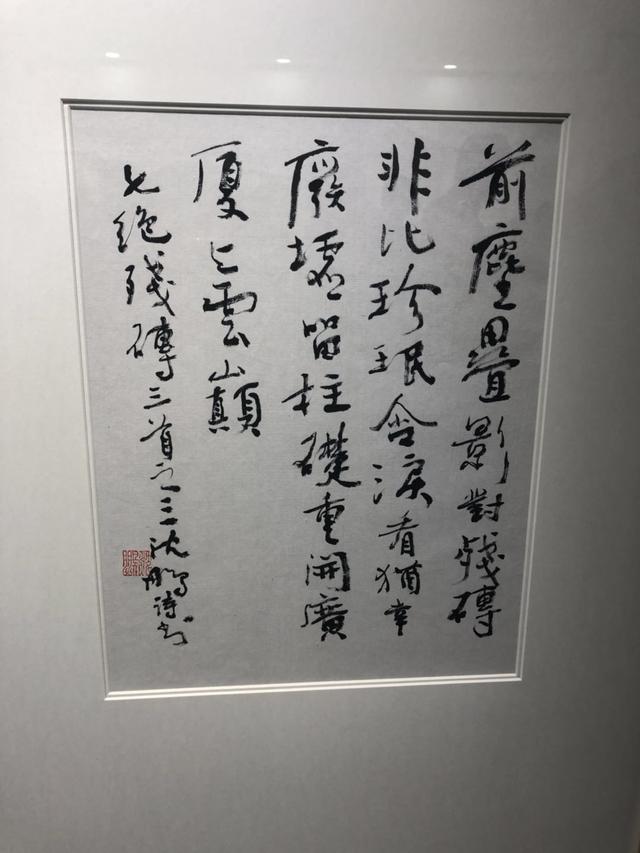 前塵疊影對殘磚
非比珍珉含淚看猶幸
廢墟留柱礎重開廣
廈上雲巔
七絕殘磚三首之三沈鵬詩书